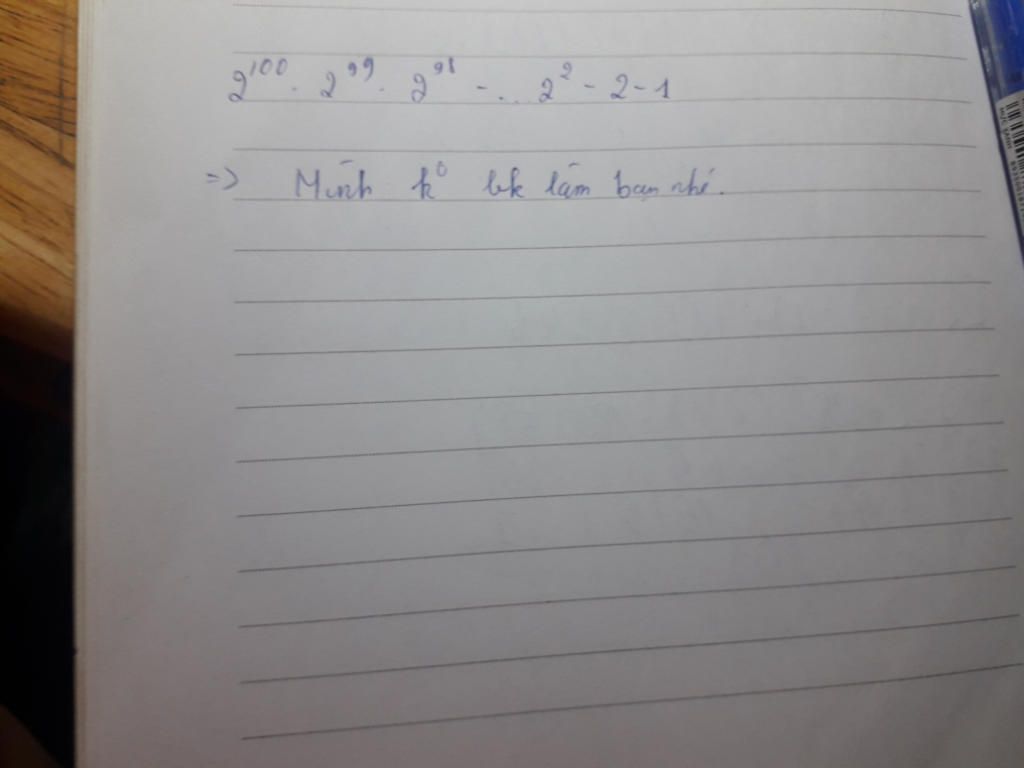 2¹⁰⁰ . 2⁹⁹ . 2⁹⁸ - ... 2² - 2 - 1
=> Mình k⁰ bk làm bạn nhé.